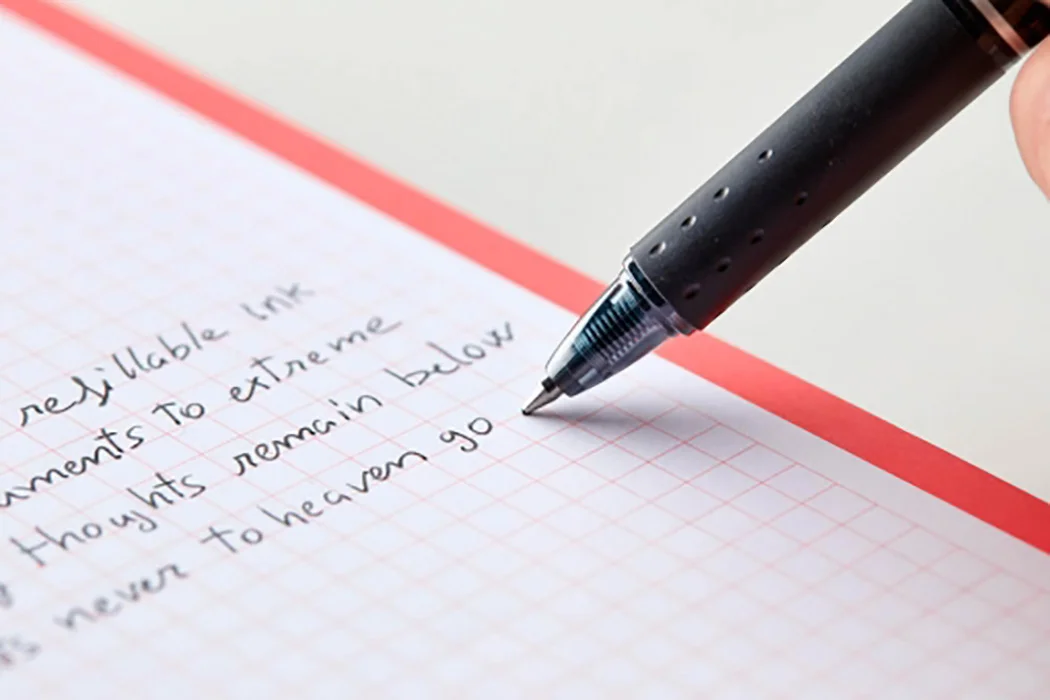 refillable ink
uments to extreme
thoughts remain below
never to heaven go